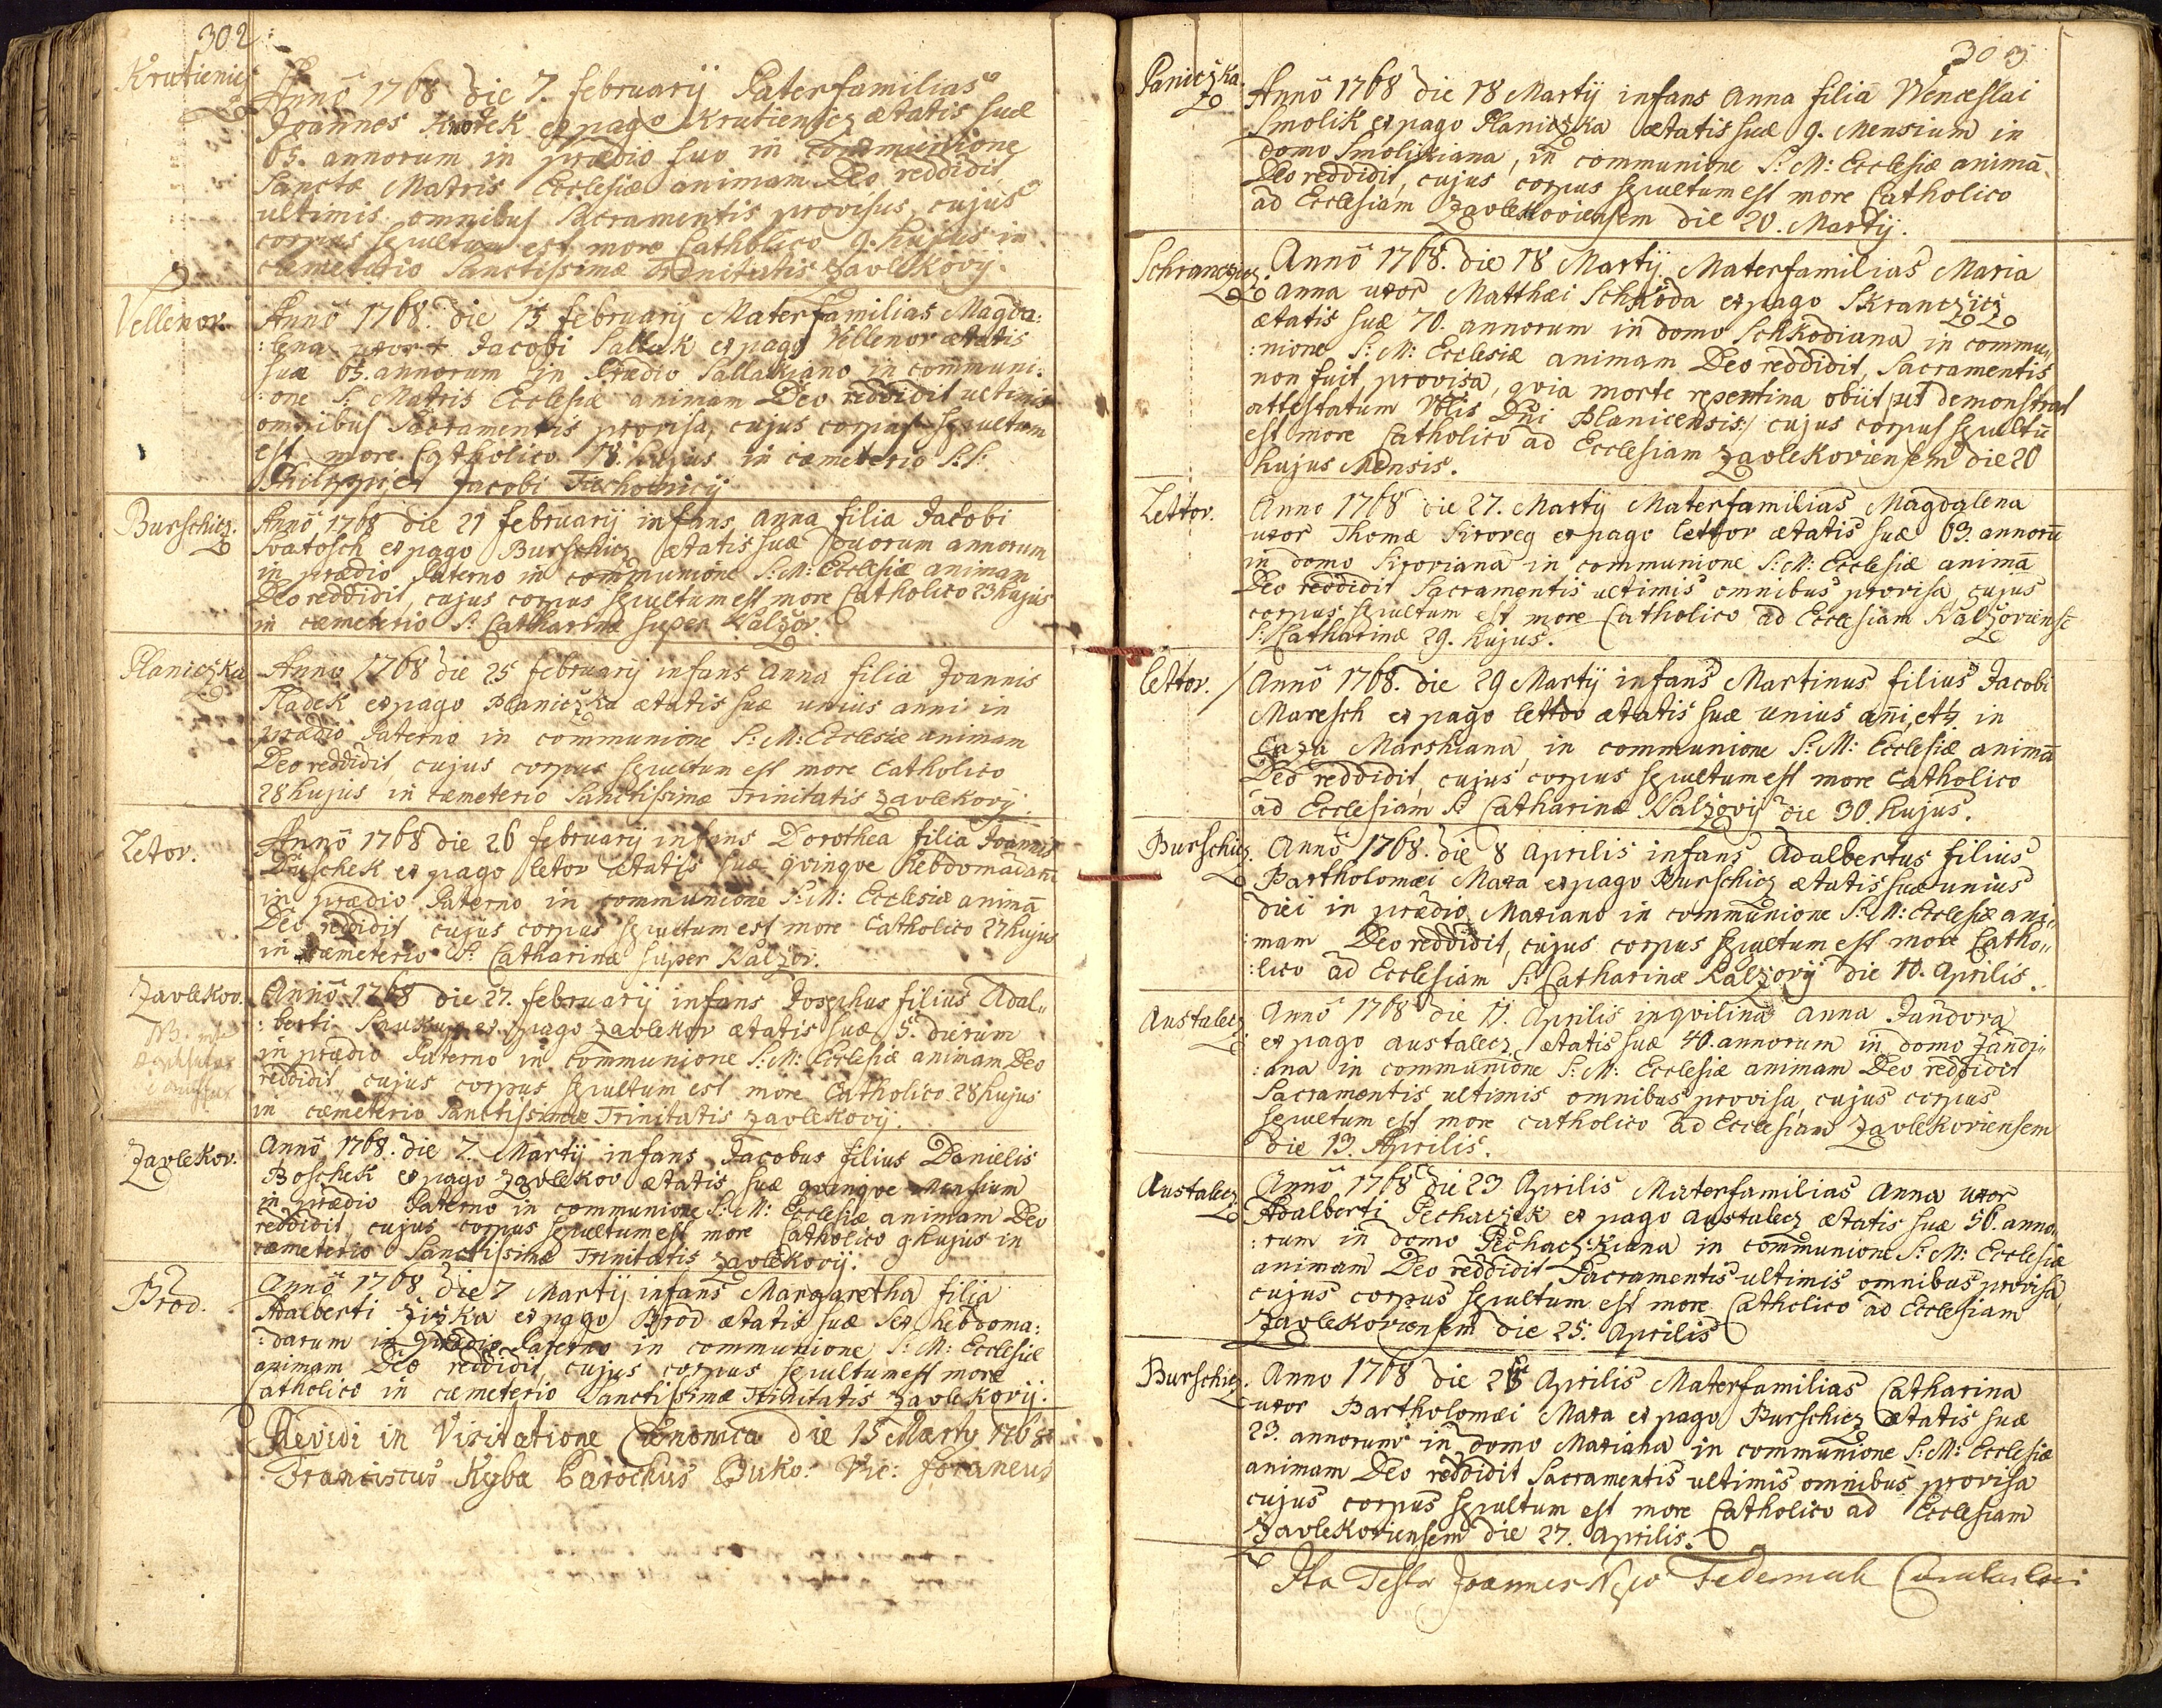 302:
Krutienicz
Annō 1768 die 7. februarij Paterfamilias
Joannes Krotek ex pago Krutienicz ætatis suæ
65. annorum in prædio suo in communione
Sanctæ Matris Ecclesiæ animam Deo reddidit
ultimis omnibus Sacramentis provisus, cujus
corpus sepultum est more Catholico 9. hujus in
cæmeterio Sanctissimæ Trinitatis Zavlekovij.
Vellenov.
Annō 1768. die 15 februarij Materfamilias Magda:
:lena uxor Jacobi Sallak ex pago Vellenov ætatis
suæ 65. annorum in Prædio Sallakiano in communi:
:one S. Matris Ecclesiæ animam Deo reddidit ultimis
omnibus Sacramentis provisa, cujus corpus sepultum
est more Catholico 18. hujus in cæmeterio S.S.
Philippi et Jacobi
Burschicz.
Annō 1768 die 21 februarij infans Anna filia Jacobi
Svatosch ex pago Burschicz ætatis suæ duorum annorum
in prædio Paterno in communione S: M: Ecclesiæ animam
Deo reddidit, cujus corpus sepultum est more Catholico 23 hujus
in cæmeterio S. Catharinæ super Kalzov.
Planiczka
Anno 1768 die 25 februarij infans Anna filia Joannis
Hladek ex pago Planiczka ætatis suæ unius anni in
prædio Paterno in communione S: M: Ecclesiæ animam
Deo reddidit, cujus corpus sepultum est more Catholico
28 hujus in cæmeterio Sanctissimæ Trinitatis Zavlekovij.
Letov.
Annō 1768 die 26 februarij infans Dorothea filia Joannis
Duschek ex pago letov ætatis suæ qvinqve hebdomadarū
in prædio Paterno in communione S: M: Ecclesiæ animā
Deo reddidit cujus corpus sepultum est more Catholico 27 hujus
in cæmeterio S. Catharinæ super Kalzov.
Zavlekov.
Annō 1768 die 27. februarij infans Josephus filius Adal„
:berti Saukup ex pago Zavlekov ætatis suæ 5. dierum
in prædio Paterno in communione S: M: Ecclesiæ animam Deo
reddidit, cujus corpus sepultum est more Catholico 28 hujus
in cæmeterio Sanctissimæ Trinitatis Zavlekovij.
Zavlekov.
Annō 1768. die 7. Martij infans Jacobus filius Danielis
Boschek ex pago Zavlekov ætatis suæ qvinqve Mensium
in prædio Paterno in communione S: M: Ecclesiæ animam Deo
reddidit, cujus corpus sepultum est more Catholico 9 hujus in
cæmeterio Sanctissimæ Trinitatis Zavlekovij.
Brod.
Annō 1768 die 7 Martij infans Margaretha filia
Adalberti Ziszka ex pago Brod ætatis suæ sex hebdoma:
:darum in prædio Paterno in communione S: M: Ecclesiæ
animam Deo reddidit, cujus corpus sepultum est more
Catholico in cæmeterio Sanctissimæ Trinitatis Zavlekovij.
Revidi in Visitatione Canonica die 15 Marty 1768
Franciscus Ryba Parochus Vic: foraneus
303
Planiczka.
Annō 1768 die 18 Martij infans Anna filia Wenceslai
Smolik ex pago Planiczka ætatis suæ 9. Mensium in
domo Smolikiana, in communione S: M: Ecclesiæ animā
Deo reddidit, cujus corpus sepultum est more Catholico
ad Ecclesiam Zavlekoviensem die 20. Martij.
Schranczicz
Annō 1768. die 18 Martij Materfamilias Maria
Anna uxor Matthæi Schkoda ex pago Skranczicz
ætatis suæ 70. annorum in domo Schkodiana in commu„
:nione S: M: Ecclesiæ animam Deo reddidit, Sacramentis
non fuit provisa, qvia morte repentina obiit /ut demonstrat
attestatum Dn̄i Planicensis:/ cujus corpus sepultū
est more Catholico ad Ecclesiam Zavlekoviensem die 20
hujus Mensis.
Lettov.
Anno 1768 die 27. Martij Materfamilias Magdalena
uxor Thomæ Siroveg ex pago lettov ætatis suæ 63. annorū
in domo Siroviana in communione S: M: Ecclesiæ animā
Deo reddidit Sacramentis ultimis omnibus provisa, cujus
corpus sepultum est more Catholico ad Ecclesiam Kalzoviensē
S: Catharinæ 29. hujus.
lettov.
Annō 1768. die 29 Martij infans Martinus filius Jacobi
Maresch ex pago lettov ætatis suæ unius an̄i et ½ in
Caza Marshiana, in communione S: M: Ecclesiæ animā
Deo reddidit, cujus corpus sepultum est more Catholico
ad Ecclesiam S. Catharinæ Kalzovij die 30. hujus.
Burschicz.
Annō 1768. die 8 Aprilis infans Adalbertus filius
Bartholomæi Maxa ex pago Burschicz ætatis suæ unius
diei in prædio Maxiano in communione S: M: Ecclesiæ ani„
:mam Deo reddidit, cujus corpus sepultum est more Catho„
:lico ad Ecclesiam S: Catharinæ Kalzovij die 10. Aprilis.
Austalecz
Annō 1768 die 11. Aprilis inqvilina Anna Jandova
ex pago Austalecz ætatis suæ 40. annorum in domo Jandi„
:ana in communione S: M: Ecclesiæ animam Deo reddidit
Sacramentis ultimis omnibus provisa, cujus corpus
sepultum est more catholico ad Ecclesiam Zavlekoviensem
die 13. Aprilis.
Austalecz
Annō 1768 die 23 Aprilis Materfamilias Anna uxor
Adalberti Pechaczek ex pago Austalecz ætatis suæ 56. anno„
:rum in domo Pechaczkiana in communione S: M: Ecclesiæ
animam Deo reddidit Sacramentis ultimis omnibus provisa,
cujus corpus sepultum est more Catholico ad Ecclesiam
Zavlekoviensem die 25. Aprilis
Burschicz.
Anno 1768 die 25 Aprilis Materfamilias Catharina
uxor Bartholomæi Maxa ex pago Burschicz ætatis suæ
23. annorum in domo Maxiana in communione S: M: Ecclesiæ
animam Deo reddidit Sacramentis ultimis omnibus provisa
cujus corpus sepultum est more Catholico ad Ecclesiam
Zavlekoviensem die 27. Aprilis.
Ita Testor Joannes Curatus loci